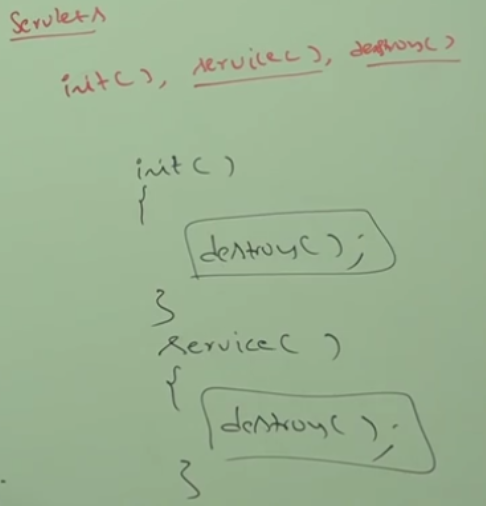 Servlets
init(), service(), destroy()
init()
{
destroy();
}
service()
{
destroy();
}